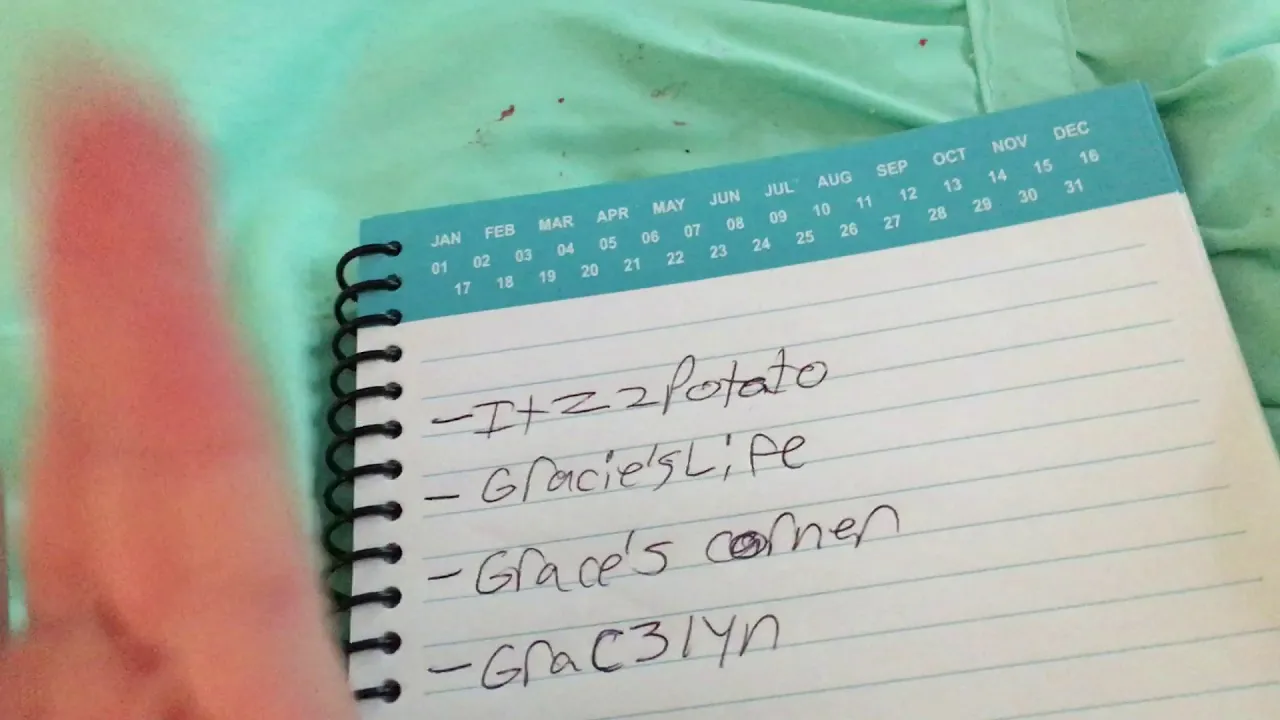 JAN FEB MAR APR MAY JUN JUL AUG SEP OCT NOV DEC
01 02 03 04 05 06 07 08 09 10 11 12 13 14 15 16
17 18 19 20 21 22 23 24 25 26 27 28 29 30 31
- ItzzPotato
- Gracie's Life
- Grace's corner
- GraC3lyn